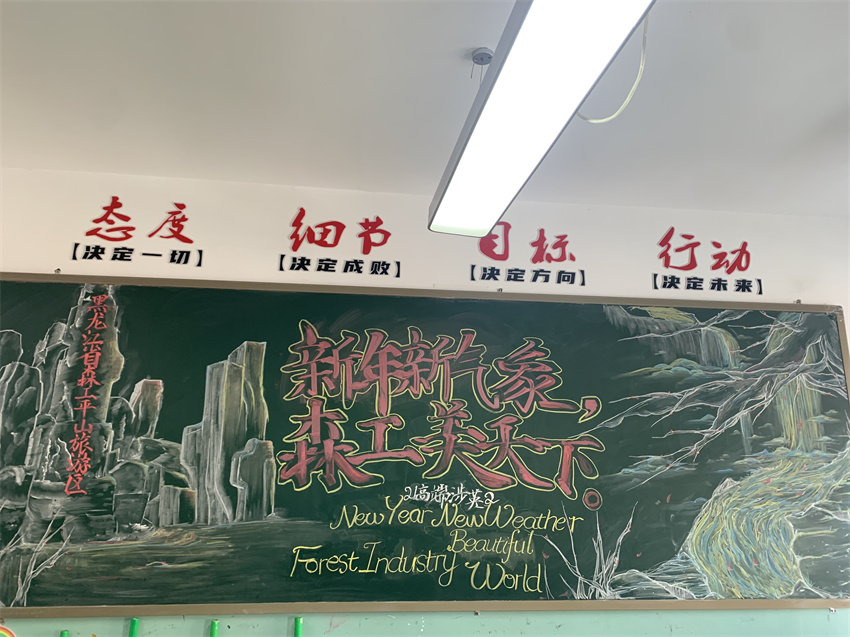 态度
【决定一切】
细节
【决定成败】
目标
【决定方向】
行动
【决定未来】
黑龙江省森工平山旅游区
新年新气象，
森工美天下。
New Year New Weather
Beautiful
Forest Industry World